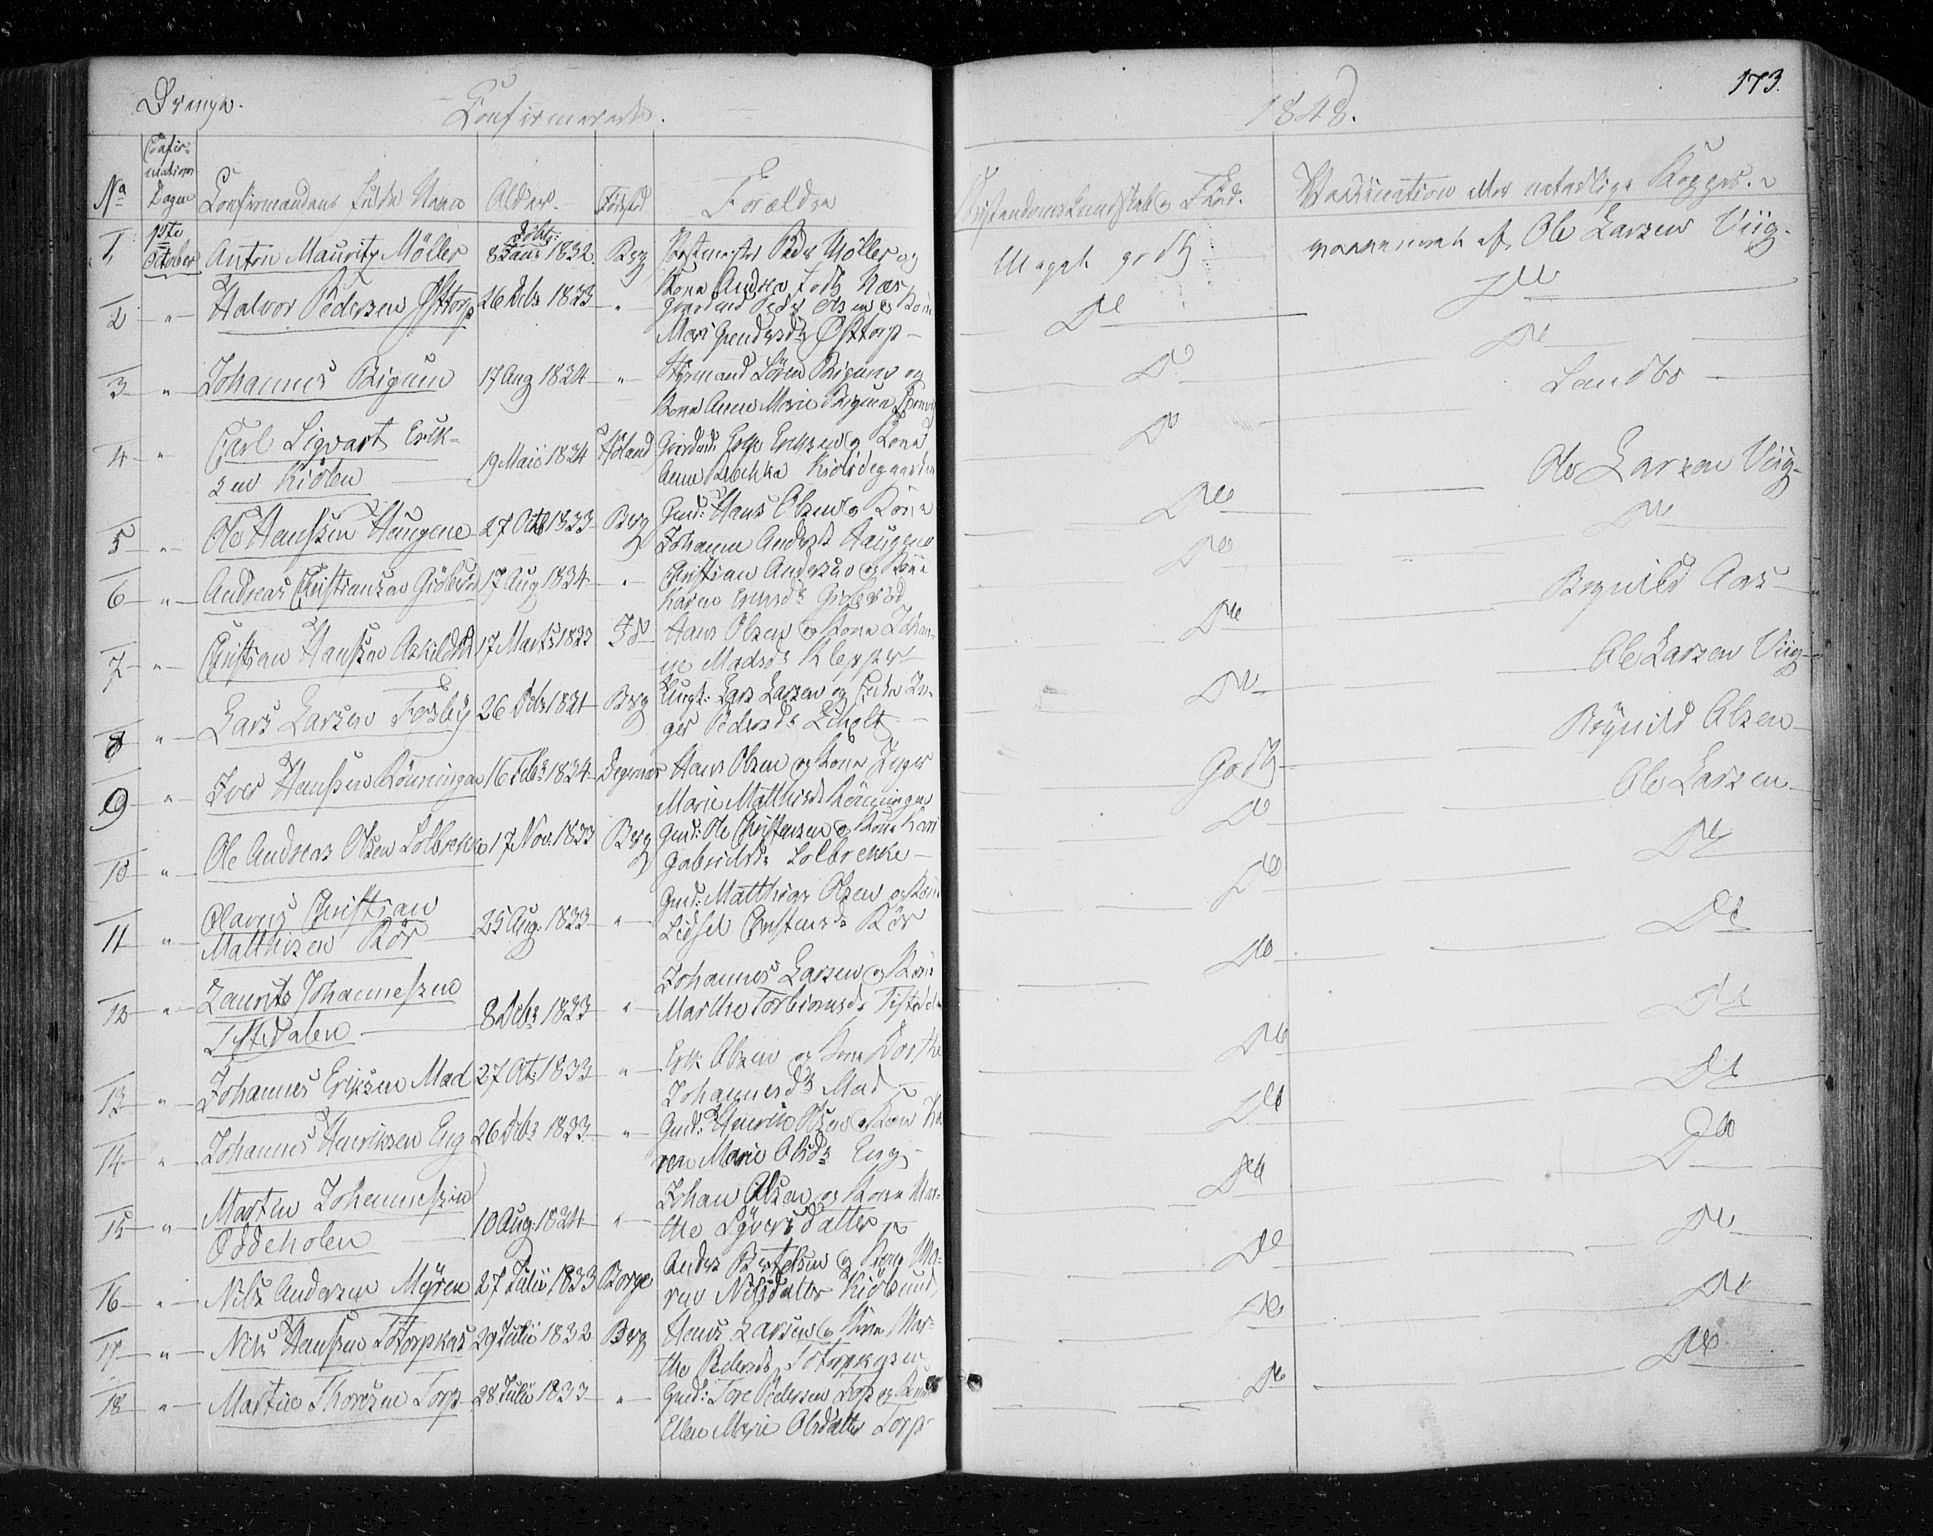 Drenge.
Confirmerede.
1848.
173.
No
Confirmations Dagen
Confirmandens fulde Navn
Alder.
Fødsted
Forældre
Christendoms Kundskab og Flid.
Vaccination eller naturlige Kopper.
1, 1ste October Anton Mauritz Möller döbt: 8 Janr 1832. Berg Postmester Peder Möller og
Kone Andrea født Næs
Meget godt
vaccineret af Ole Larsen Viig.
2 " Halvor Pedersen Østtorp 26 Debr 1833 " Gaardmd Peder Olsen og Kone
Mari Gundersdr Østtorp
Do
Do
3 " Johannes Bigum 17 Aug 1834 " Styrmand Sören Bigum og
Kone Anne Marie Bigum
Do
Do
Landbo
4 " Carl Sigvart Erik-
sen Kiölen 19 Maii 1834 Höland Gaardmd: Erik Eriksen og Kone
Anne
Do
Ole Larsen Viig
5 " Ole Hanssen Haugene 27 Octb 1833 Berg Gmd: Hans Olsen og Kone
Johanne Andersdr Haugene
Do
Do
6 " Andreas Christiansen Gröterød 17 Aug 1834 " Christian Andersen og Kone
Karen
Do
Aas
7 " Christian Hanssen 17 Marts 1833 Id Hans Olsen og Kone Johan-
ne Madsdr Klepper
Do
Ole Larsen Viig
8 " Lars Larsen Torsby 26 Debr 1831 Berg Ungk: Lars Larsen og Enke In-
ger Pedersdr
Do
Olsen
9 " Iver Hanssen Rönningen 16 Febr 1834 Degernes Hans Olsen og Kone Inger
Marie Matthisdr Rönningen
Godt
Ole Larsen
10 " Ole Andreas Olsen Solbrekke 17 Nov. 1833 Berg Gmd: Ole Christensen og Kone Kari
Gabrielsdr Solbrekke
Do
Do
11 " Olaus Christian
Matthisen Rör 25 Aug: 1833 " Gmd: Matthias Olsen og Kone
Sidsel Christensdr Rör
Do
Do
12 " Laurits Johannessen
Tistedalen 8 Debr 1833 " Johannes Larsen og Kone
Marthe Torbiornsdr Tistedalen
Do
Do
13 " Johannes Eriksen Mad 27 Otb 1833 " Erik Olsen og Kone Dorthe
Johannesdr Mad
Do
Do
14 " Johannes Henriksen Eng 26 Debr 1833 " Gmd: Henrik Olsen og Kone Ka-
ren Marie Olsdr Eng
Do
Do
15 " Martin Johannessen
Oddeholen 10 Aug: 1834 " Johan Olsen og Kone Mar-
the Syversdatter
Do
Do
16 " Nils Andersen Myren 27 Julii 1833 Borge Anders Bertelsen og Kone Ma-
ren Nilsdatter
Do
Do
17 " Nils Hanssen Torpkas 29 Julii 1832 Berg Hans Larsen og Kone Mar-
the Pedersdr Torpkasen
Do
Do
18 " Martin Thoresen Torp 28 Julii 1833 " Gmd: Tore Pedersen Torp og Kone
Ellen Marie Olsdatter Torp
Do
Do